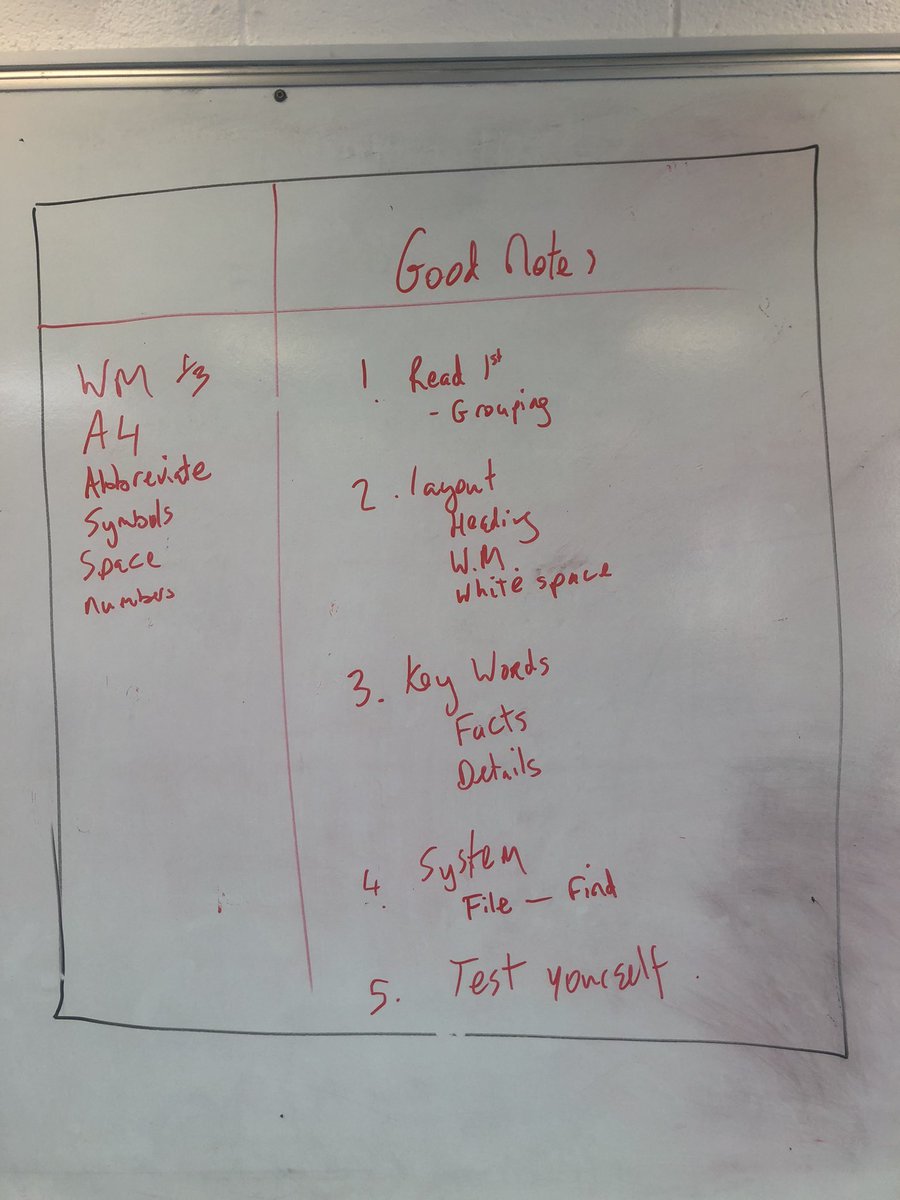 Good Notes
WM 1/3
A4
Abbreviate
Symbols
Space
numbers
1. Read 1st
- Grouping
2. layout
Heading
W.M
white space
3. Key Words
Facts
Details
4. System
File - Find
5. Test yourself.